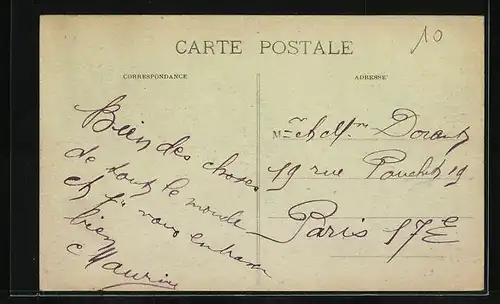 10
CARTE POSTALE
CORRESPONDANCE
ADRESSE
Bien des choses
de tout le monde
et vous embrasse
bien
Maurice
Mr et Mme Dorant
19 rue Pouchet 19
Paris 17E